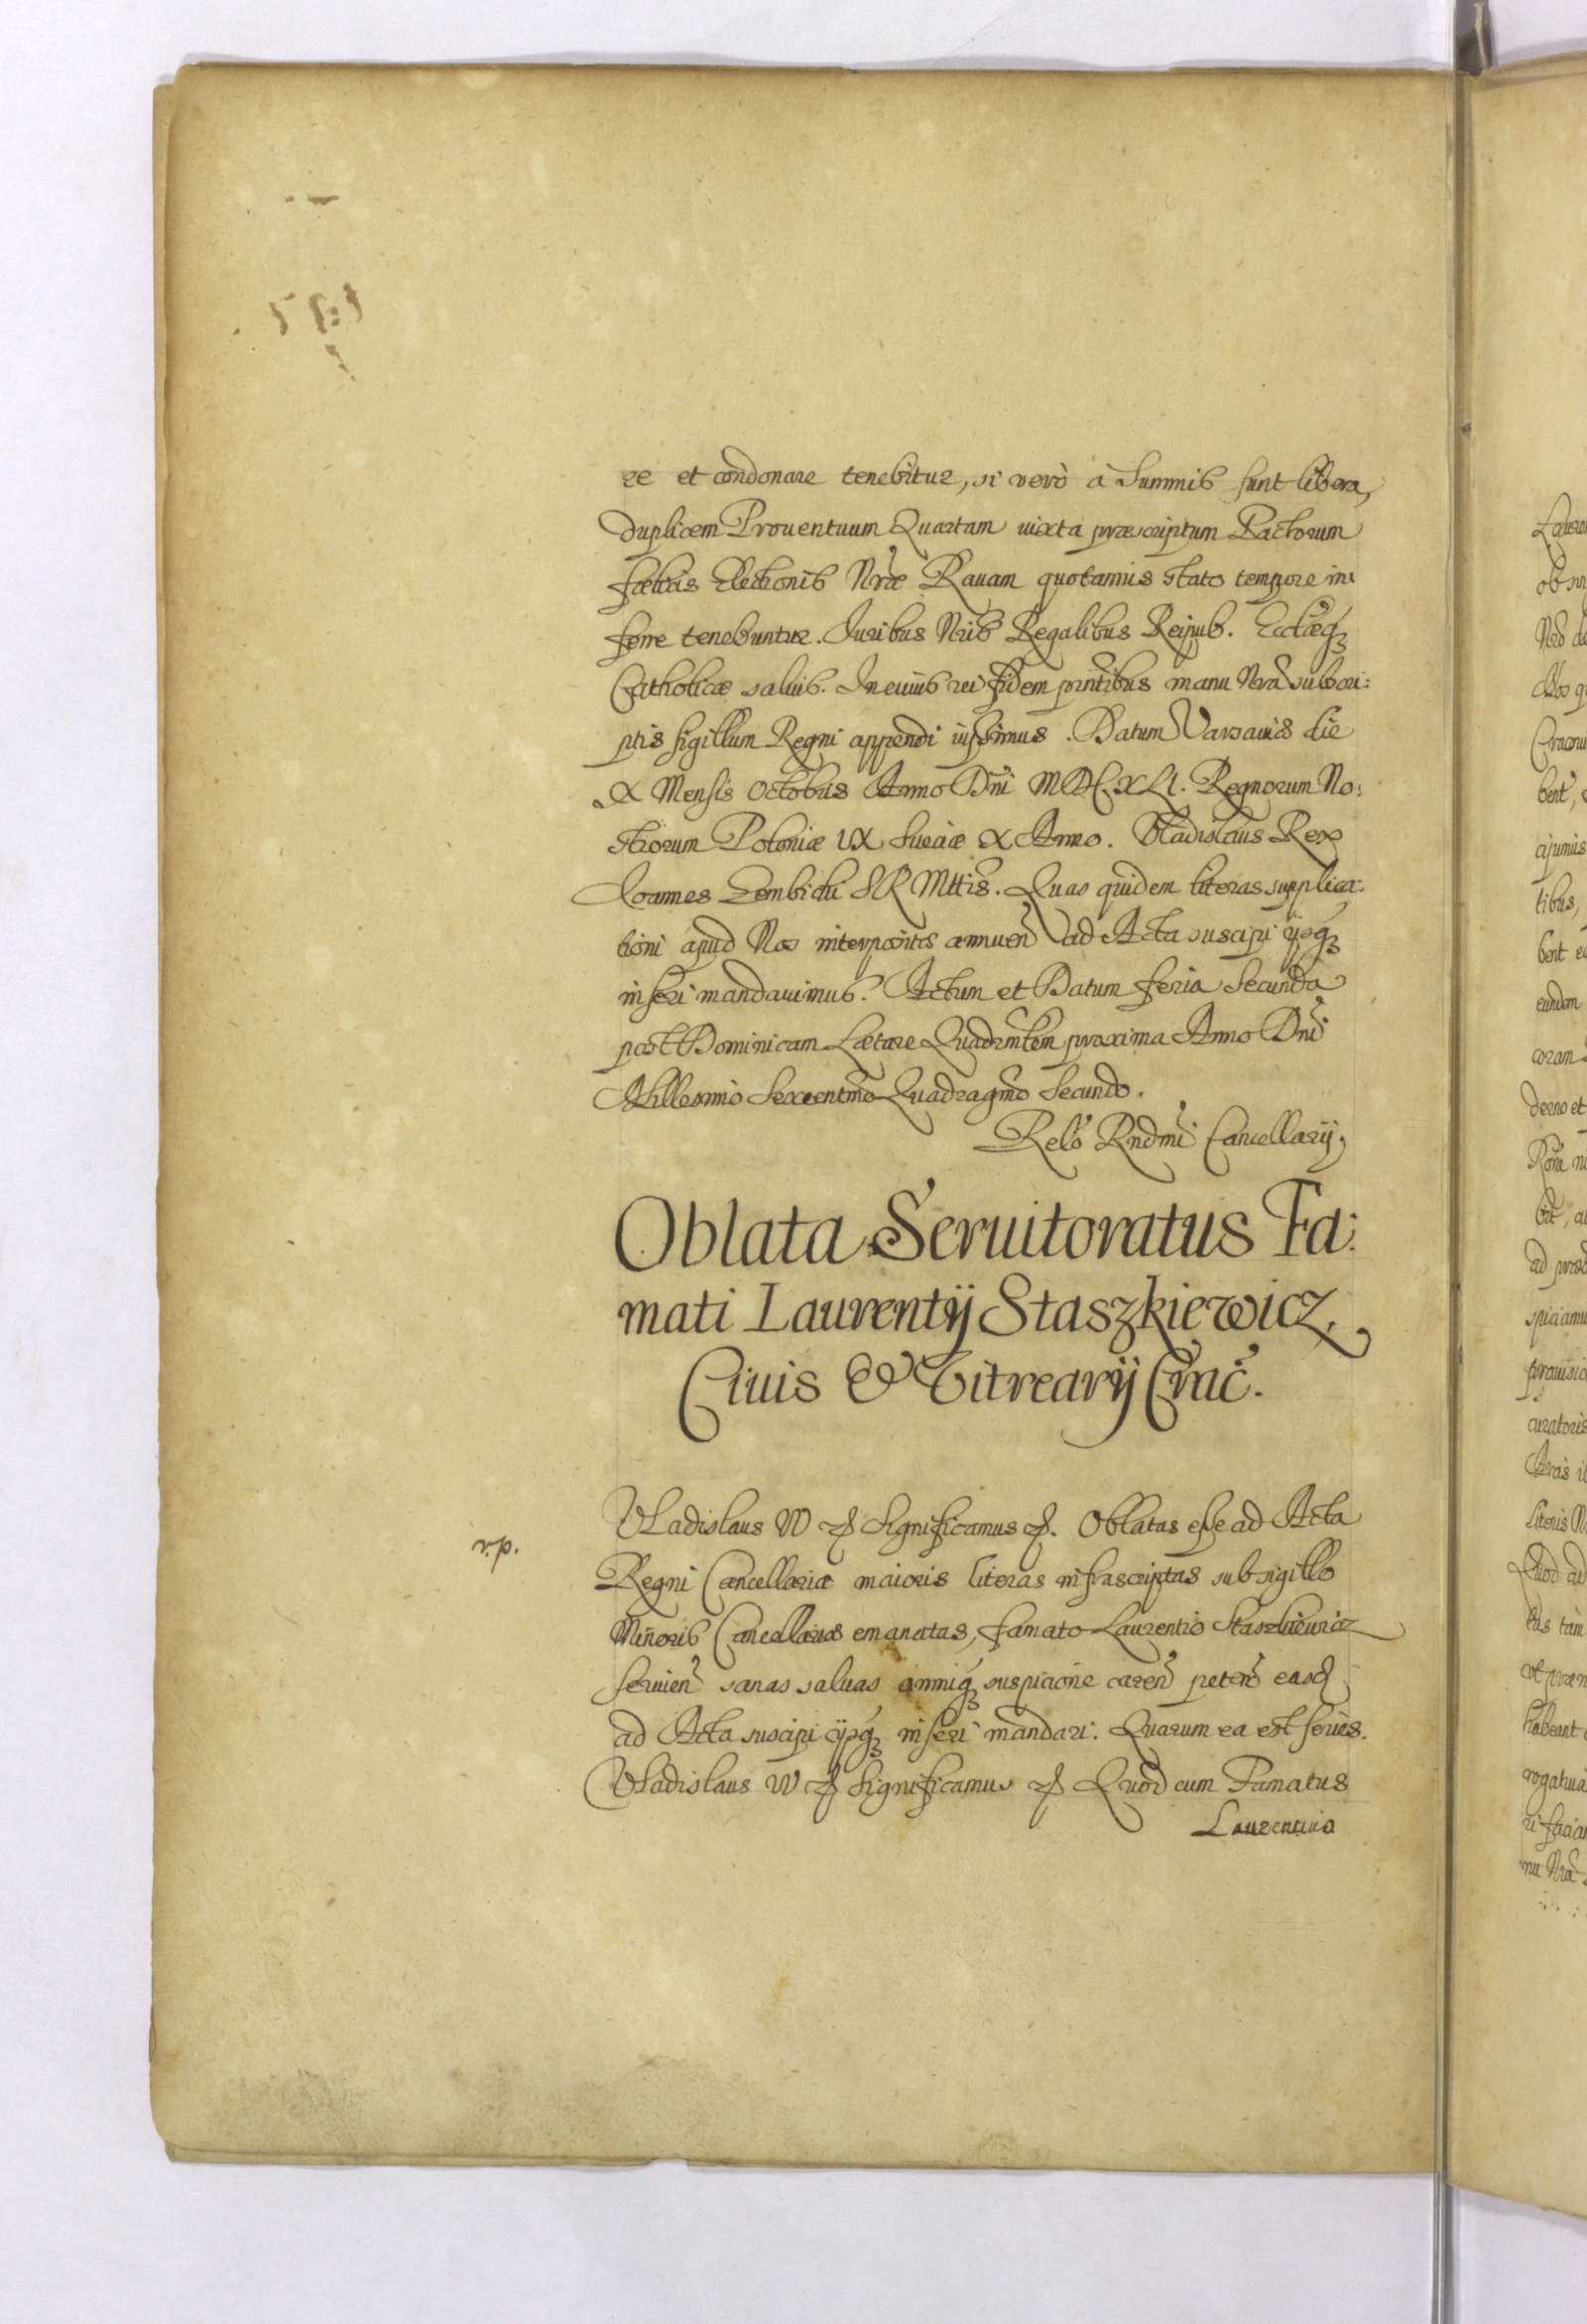 re et condonare tenebitur, si verò à Summis sunt libera,
duplicem Prouentuum Quartam iuxta præscriptum Pactorum
fælicis Electionis Nræ Rauam quotannis stato tempore in:
ferre tenebuntur. Iuribus Nris Regalibus Reipub. Ecclæq;
Catholicæ saluis. In cuius rei fidem pntibus manu Nra subscri:
ptis sigillum Regni appendi iussimus. Datum Varsauiæ die
X Mensis Octobris Anno Dni MDC.XLI. Regnorum No:
strorum Poloniæ IX Sueciæ X Anno. Vladislaus Rex
Ioannes Zembicki SR Mttis. Quas quidem literas supplica:
tioni apud Nos interpositæ annuen ad Acta suscipi ijsq;
inseri mandauimus. Actum et Datum feria Secunda
post Dominicam Lætare Quadrmlem proxima Anno Dni
Millesimo Sexcentmo Quadragmo Secundo.
Relo Rndmi Cancellarij
Oblata Seruitoratus Fa:
mati Laurentij Staszkiewicz,
Ciuis & Vitrearij Crac.
Vladislaus IV Significamus. Oblatas esse ad Acta
Regni Cancellariæ maioris literas infrascriptas sub sigillo
Minoris Cancellariæ emanatas, famato Laurentio Staszkiewicz
seruien sanas saluas omniq; suspicione caren peten easd
ad Acta suscipi ijsq; inseri mandari. Quarum ea est series.
Vladislaus IV Significamus Quod cum Famatus
Laurentius